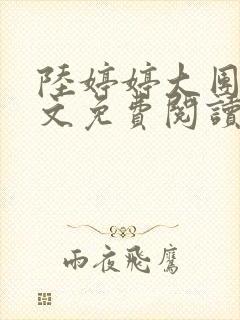 陸婷婷大團
文免費閱讀
雨夜飛鷹